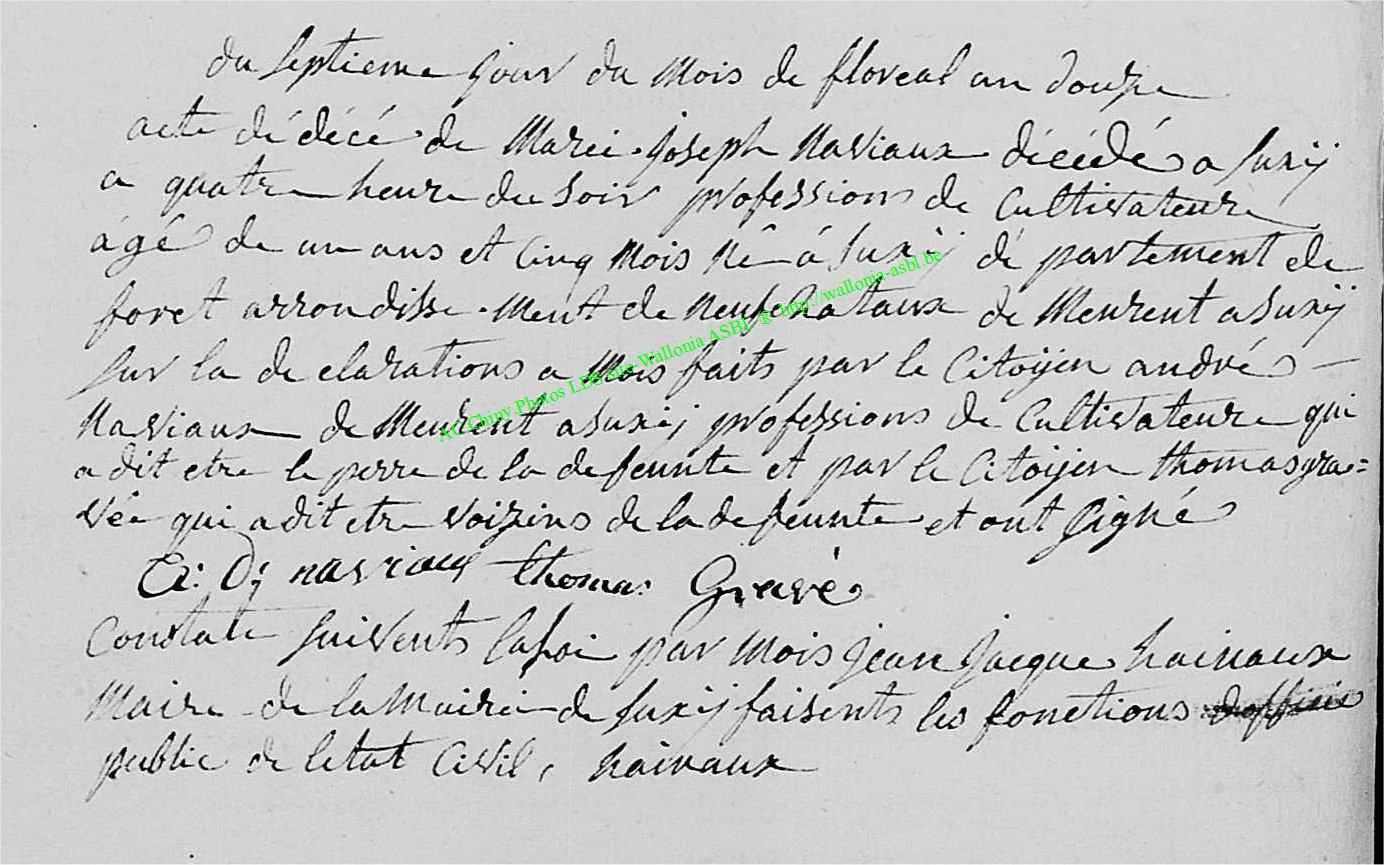 du septieme jour du mois de floreal an douze
acte dédécé de Marei joseph Naviaux décédé a Suxÿ
a quatre heure du soir professions de Cultivateure
âgé de un ans et Cinq mois né a Suxÿ dé partement de
foret arrondisse ment de neufchataux de meurent a Suxÿ
sur la de clarations a mois faits par le Citoÿen andrés
Naviaux de meurent a Suxÿ professions de Cultivateure qui
a dit etre le perre de la defeunte et par le Citoÿen thomas gra=
vée qui a dit etre voizins de la defeunte et ont signé
naviaux thomas Gravé
Constate suivents la loi par mois jean jacque hainaux
Maire de la Mairie de Suxÿ faisents les fonctions
public de letat Civil, hainaux
AC Chiny Photos LDB via Wallonia ASBL @ http://wallonia-asbl.be